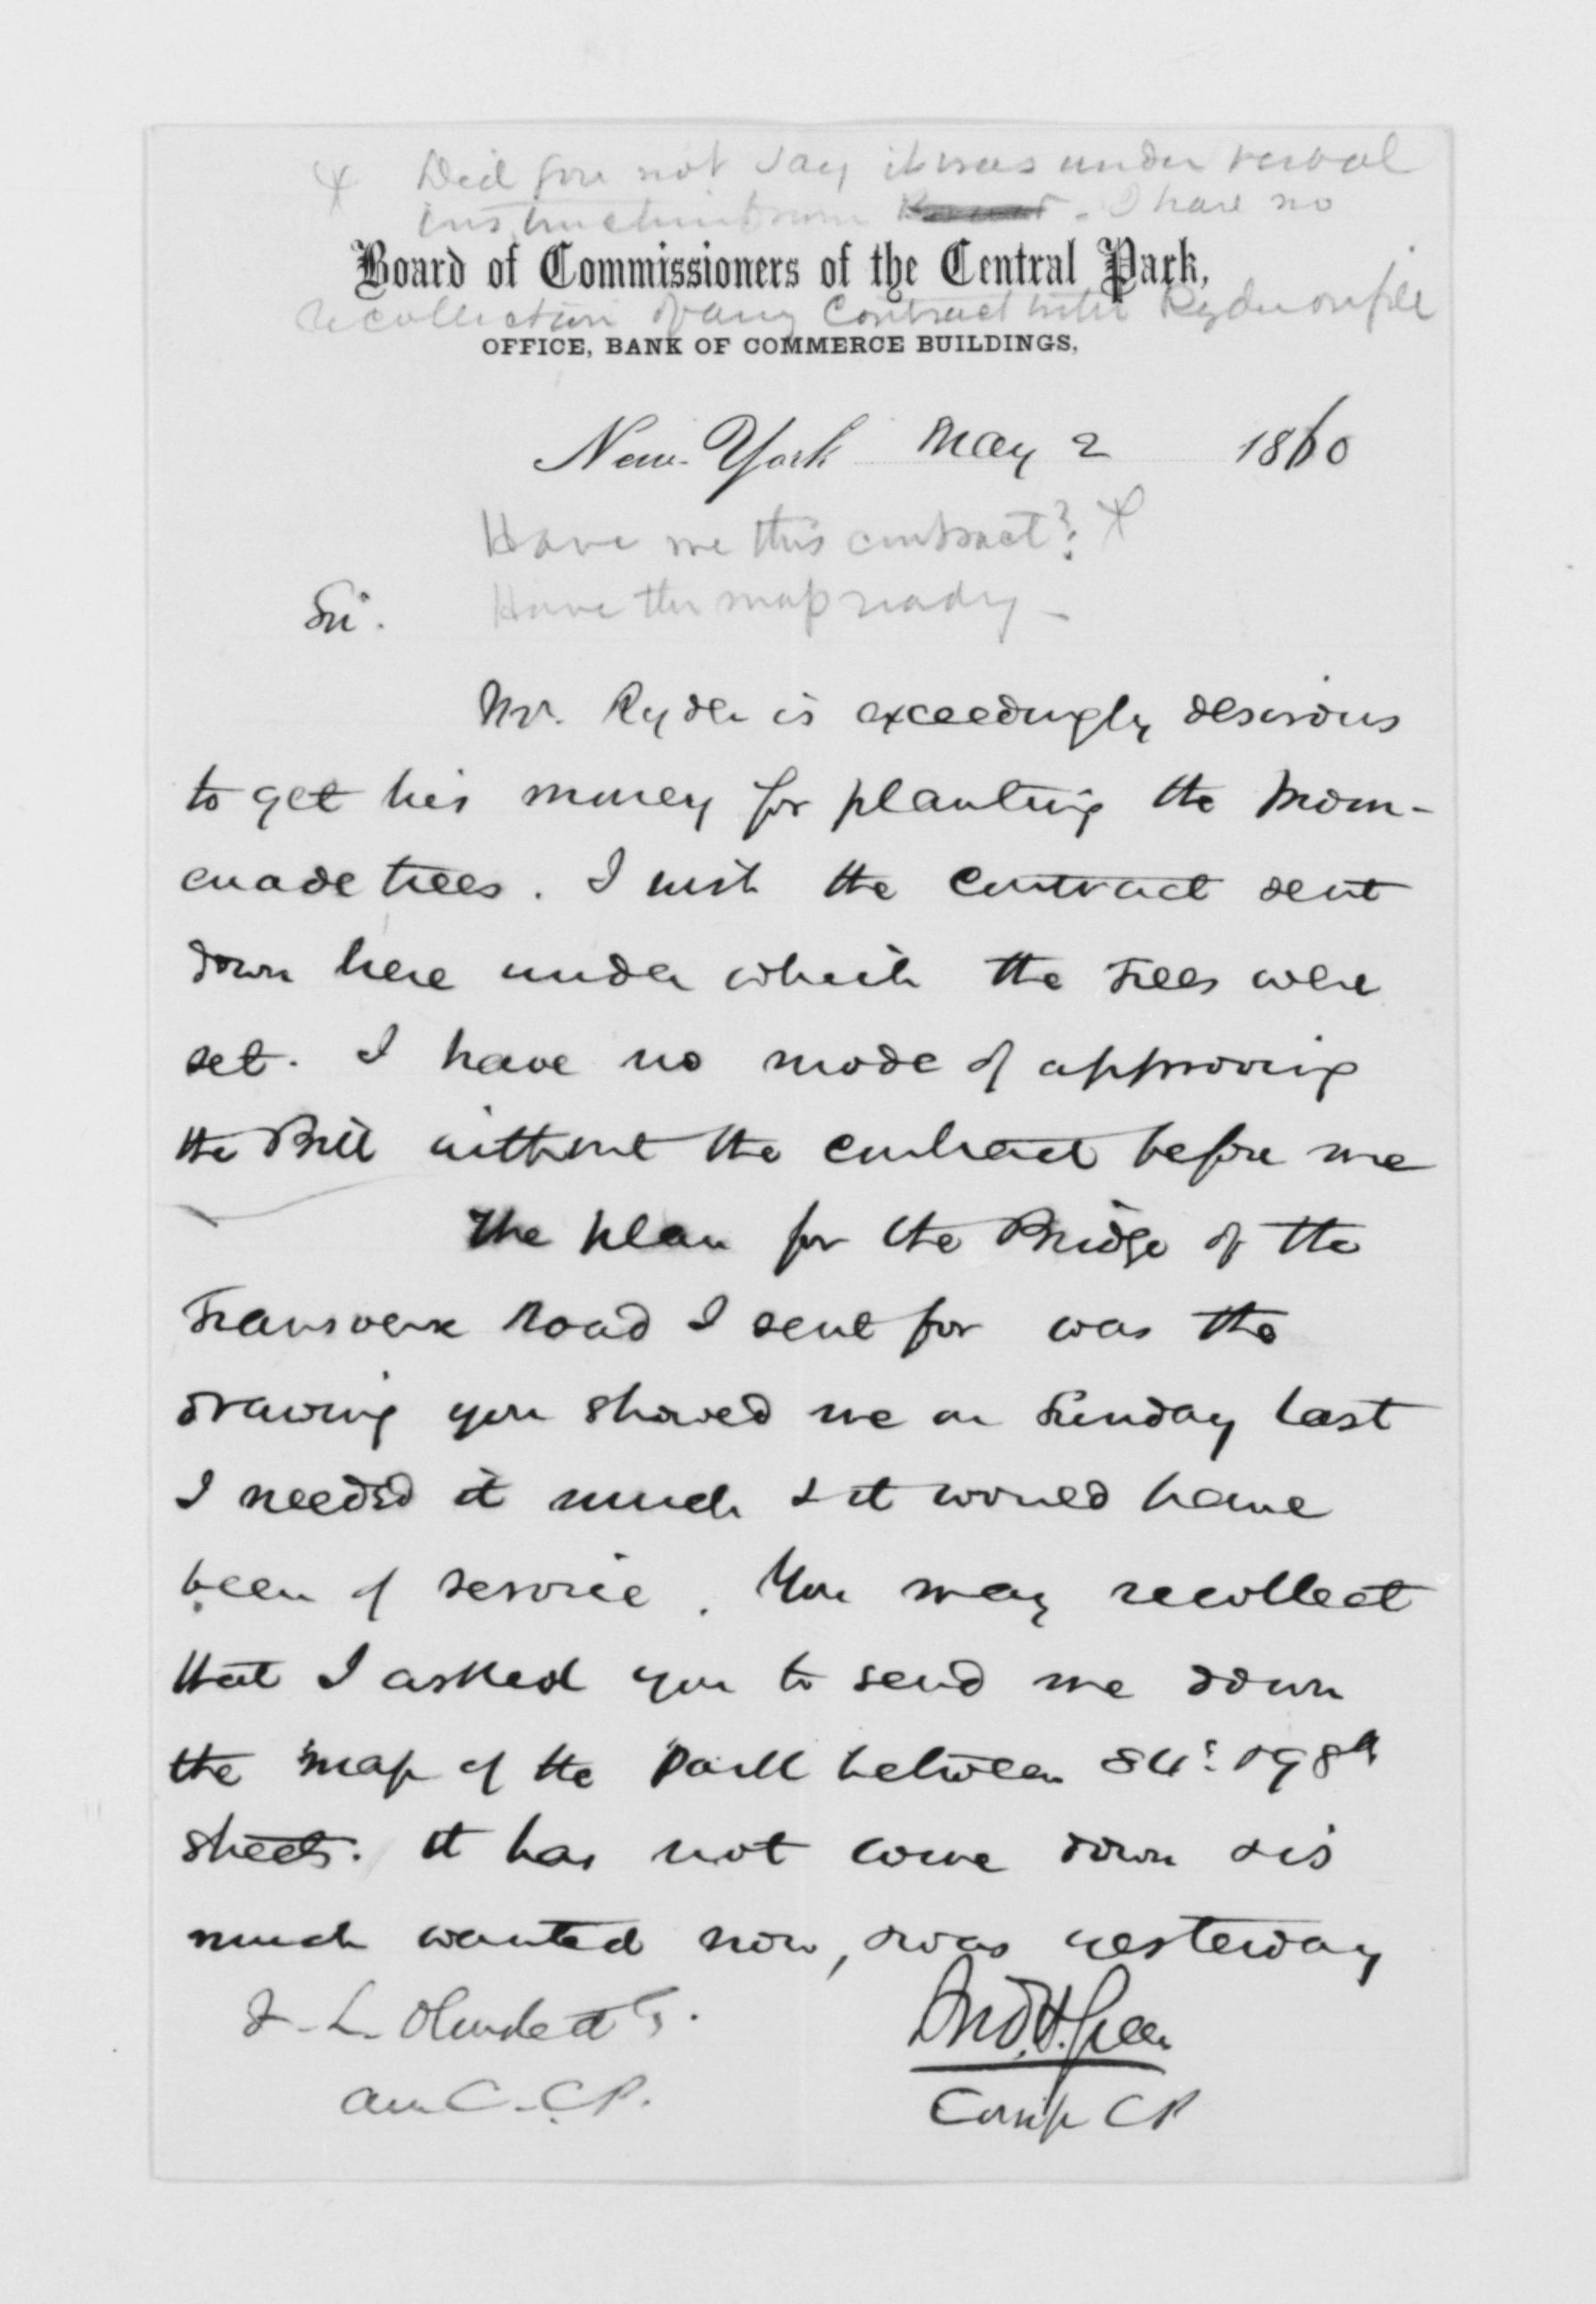 x Did you not say it was under verbal
instruction from . I have no
Board of Commissioners of the Central Park,
recollection of any contract with Ryder on file
OFFICE, BANK OF COMMERCE BUILDINGS,
New-York May 2 1860
Have we this contract? x
Have the map ready -
Sir.
Mr. Ryder is exceedingly desirous
to get his money for planting the Prom-
enade trees. I wish the contract sent
down here under which the trees were
set. I have no mode of approving
the Bill without the contract before me
The plan for the Bridge of the
Transverse Road I sent for was the
drawing you showed me on Sunday last
I needed it much & it would have
been of service. You may recollect
that I asked you to send me down
the map of the Park between 84th & 98th
streets. It has not come down & is
much wanted now, & was yesterday
F. L. Olmsted Esq.
C. C.P.
And. H. Green
Comp CP